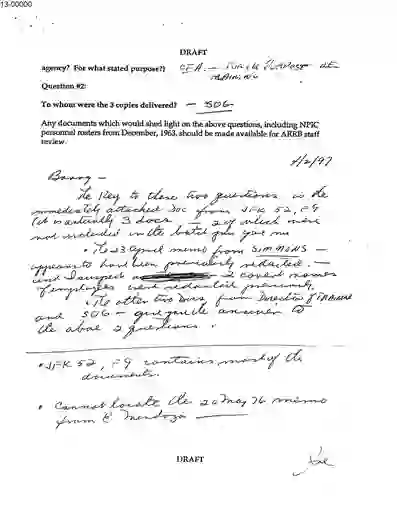 13-00000
DRAFT
agency? For what stated purpose?)
Question #2:
To whom were the 3 copies delivered? — SOG
Any documents which would shed light on the above questions, including NPIC
personnel rosters from December, 1963, should be made available for ARRB staff
review.
4/2/97
Barry —
The Key to these two questions is the
immediately attached doc from JFK 52, F9
(it is actually 3 docs — 2 of which were
not included in the batch you gave me
• The 23 April memo from SIMMONS —
appears to have been previously redacted. —
and I suspect 2 covert names
of employees were redacted previously.
• The other two Docs from Director of
and SOG — give possible answer to
the above 2 questions.
• JFK 52, F9 contains most of the
documents.
• Cannot locate the 20 May 76 memo
from E Mendoza
DRAFT